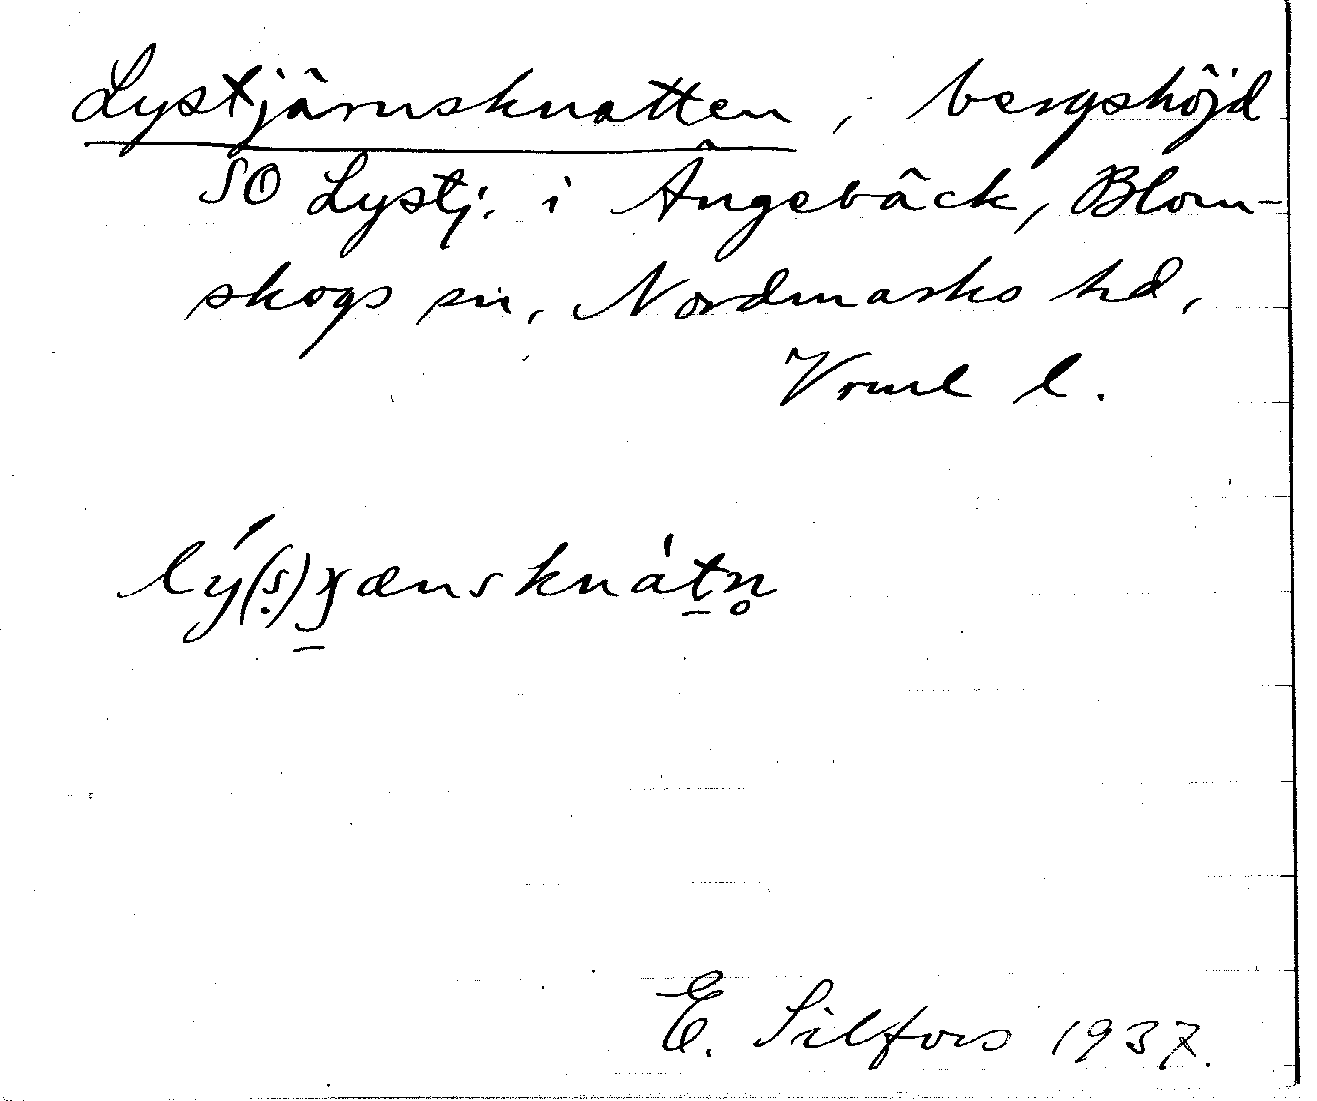 Lystjärnsknatten, bergshöjd
SO Lystj. i Ångebäck, Blom-
skogs sn, Nordmarks hd,
Vrml l.
lý(ṣ)ɟænsknàt̠n̥
E. Silfors 1937.